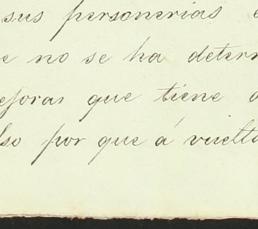 sus personerias e
e no se ha determ
ejoras que tiene a
lso por que á vuelta